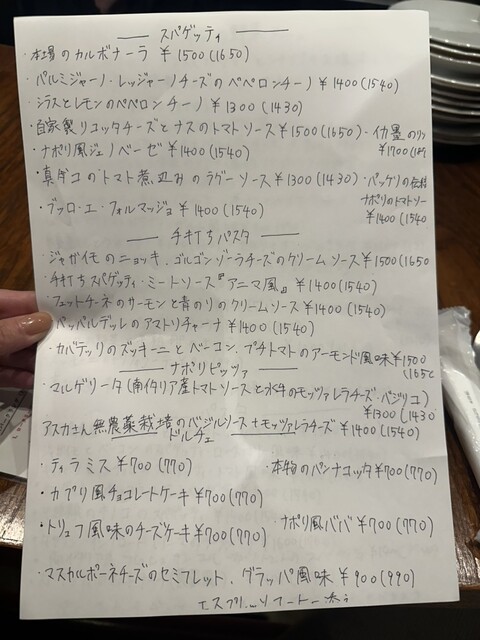 スパゲッティ
・本場のカルボナーラ ¥1500(1650)
・パルミジャーノ・レッジャーノチーズのペペロンチーノ ¥1400(1540)
・シラスとレモンのペペロンチーノ ¥1300(1430)
・自家製リコッタチーズとナスのトマトソース ¥1500(1650) ・イカ墨のリン
・ナポリ風ジェノベーゼ ¥1400(1540) ¥1700(187
・真ダコのトマト煮込みのラグーソース ¥1300(1430) ・パッケリの伝統
ナポリのトマトソー
・ブッロ・エ・フォルマッジョ ¥1400(1540) ¥1400(1540
手打ちパスタ
・ジャガイモのニョッキ、ゴルゴンゾーラチーズのクリームソース ¥1500(1650
・手打ちスパゲッティ・ミートソース『アニマ風』 ¥1400(1540)
・フェットチーネのサーモンと青のりのクリームソース ¥1400(1540)
・パッパルデッレのアマトリチャーナ ¥1400(1540)
・カバテッリのズッキーニとベーコン、プチトマトのアーモンド風味 ¥1500
(1650
ナポリピッツァ
・マルゲリータ(南イタリア産トマトソースと水牛のモッツァレラチーズ・バジリコ)
¥1300(1430)
アスカさん無農薬栽培のバジルソース+モッツァレラチーズ ¥1400(1540)
ドルチェ
・ティラミス ¥700(770) ・本物のパンナコッタ ¥700(770)
・カプリ風チョコレートケーキ ¥700(770)
・トリュフ風味のチーズケーキ ¥700(770) ・ナポリ風ババ ¥700(770)
・マスカルポーネチーズのセミフレット、グラッパ風味 ¥900(990)